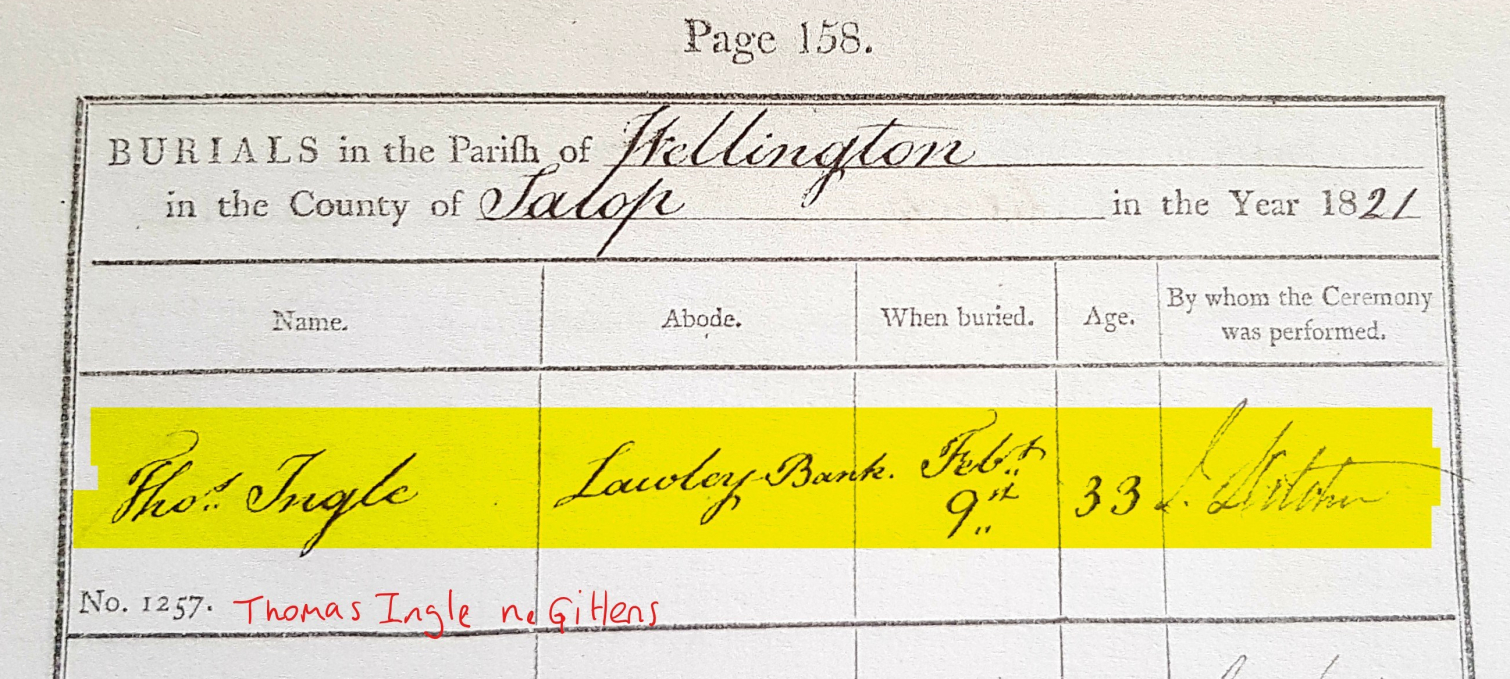 Page 158.
BURIALS in the Pariſh of Wellington
in the County of Salop in the Year 1821
Name.
Abode.
When buried.
Age.
By whom the Ceremony
was performed.
Thos. Ingle
Lawley Bank.
Feby.
9th
33
No. 1257.
Thomas Ingle ne Gittens